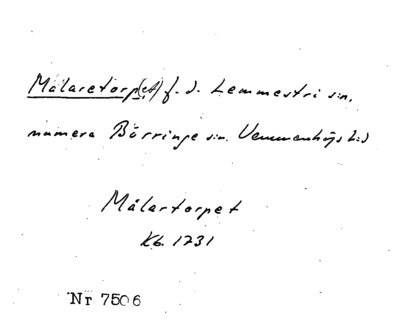 Målaretorp(et) f.d. Lemmestri sn,
numera Börringe sn. Vemmenhögs hd
Målartorpet
Kb. 1731
Nr 7506